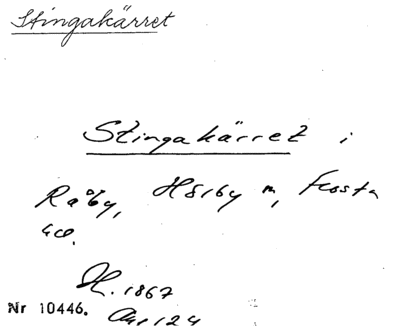 Stingakärret
Stingakärret i
Råby, Hörby m, Frosta
hd.
H. 1867
Nr 10446.
124